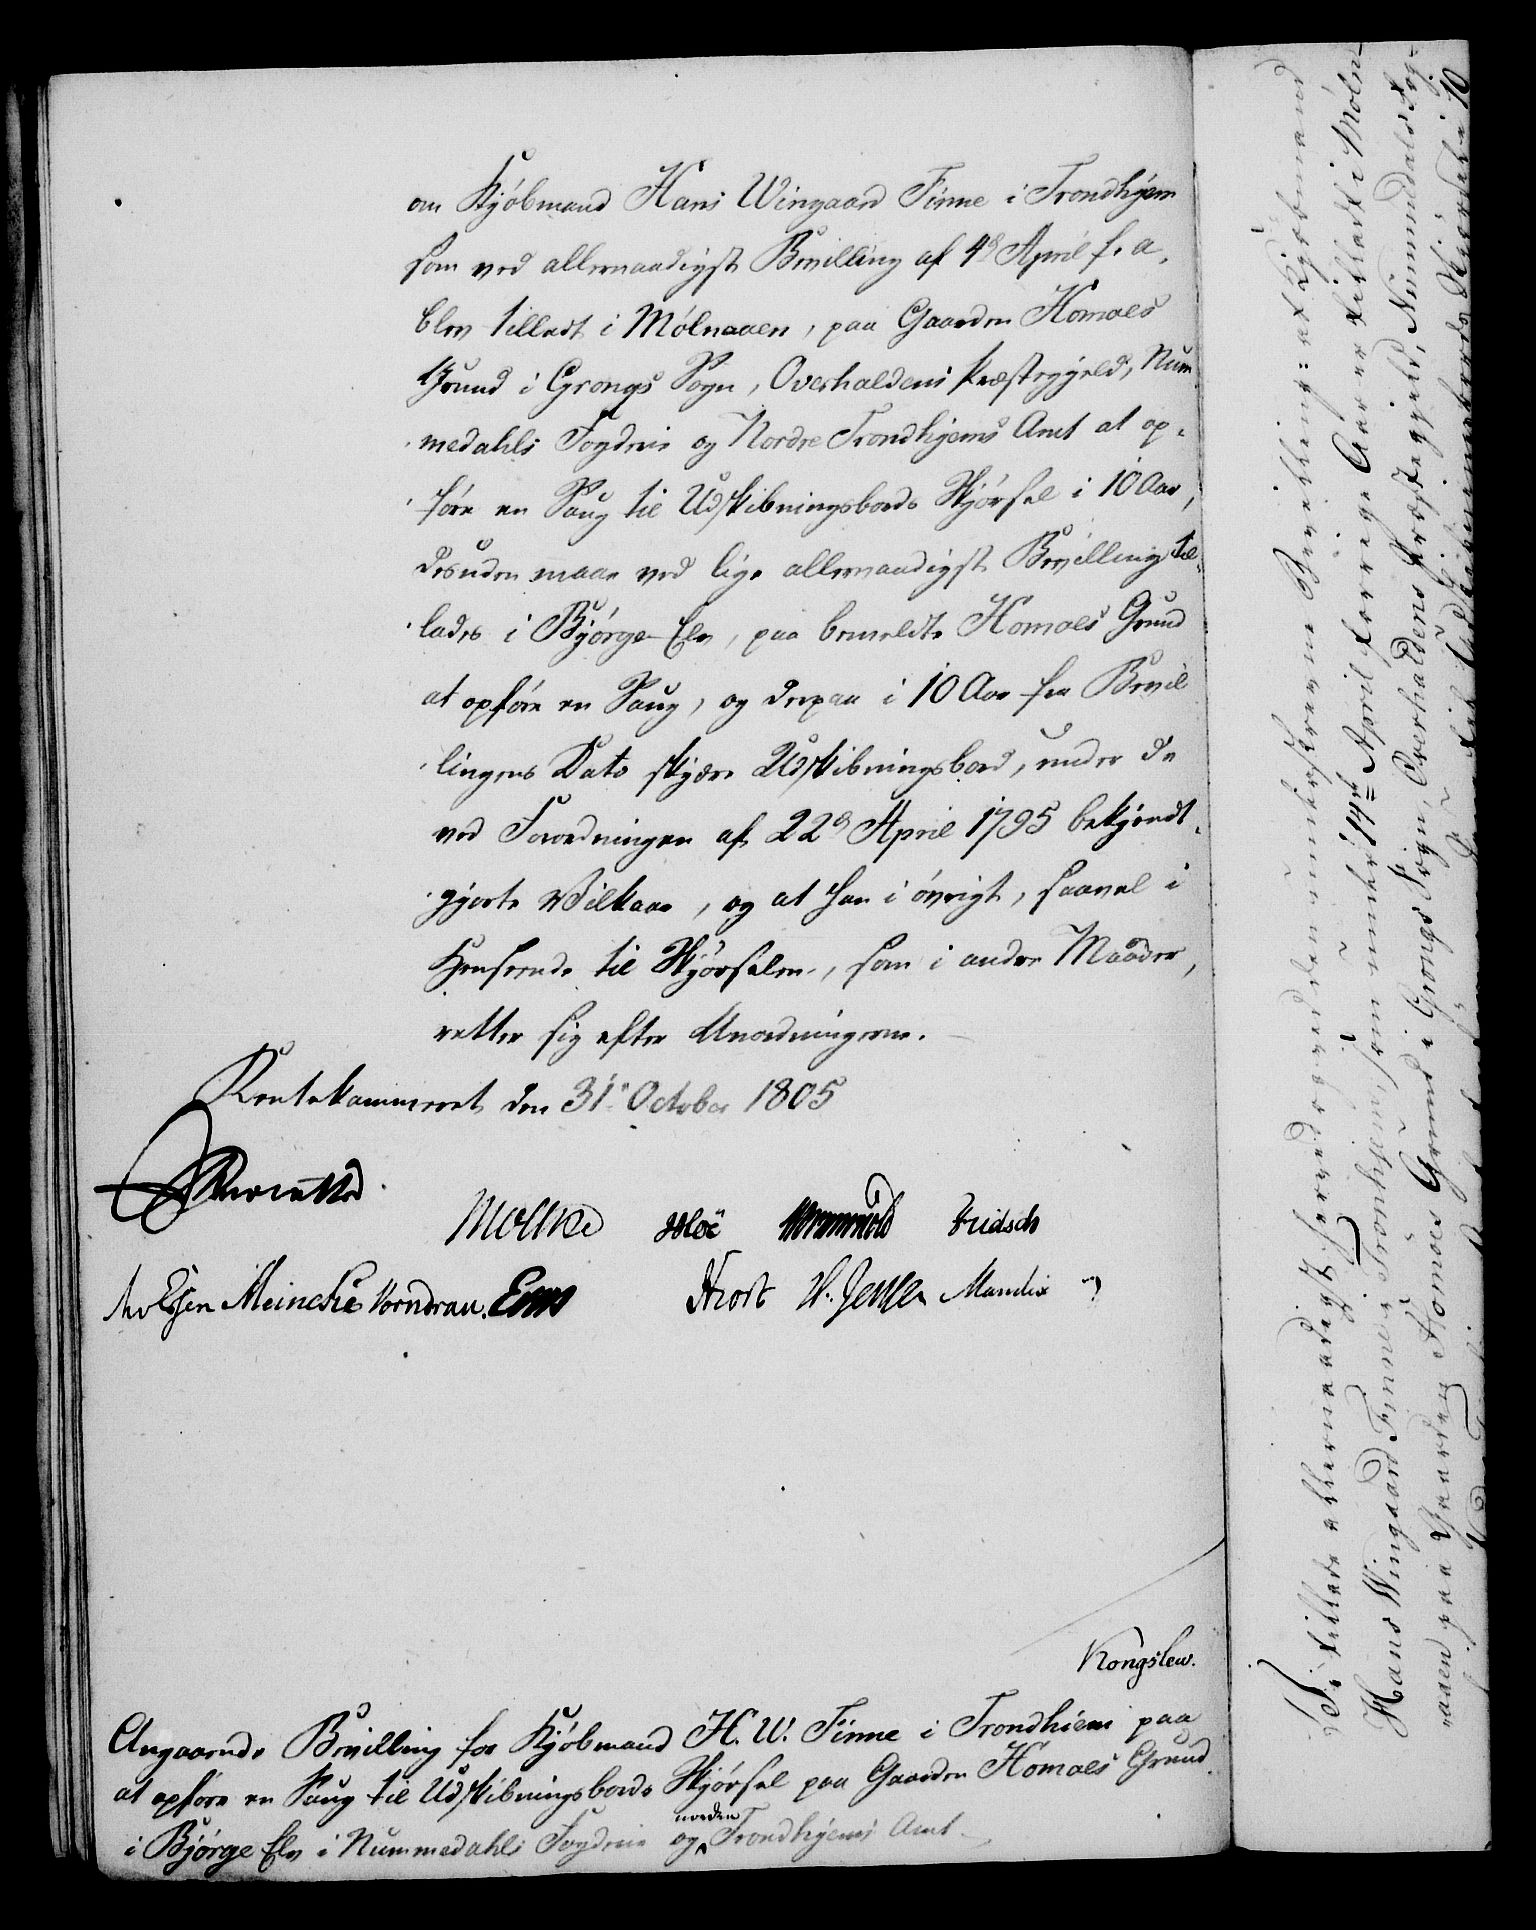 om Kjøbmand Hans Wingaard Finne i Trondhjem
som ved allernaadigst Bevilling af 4de April f. a.
blev tilladt i Mølnaaen, paa Gaarden Homoes
Grund i Grongs Sogn, Overhaldens Præstegjeld, Num
medahls Fogderie og Nordre Trondhjems Amt at op-
føre en Saug til Udskibningsbords Skjørsel i 10 Aar,
desuden maae ved lige allernaadigst Bevilling til-
lades i Bjørge Elv, paa bemeldte Homoes Grund
at opføre en Saug, og derpaa i 10 Aar fra Bevil
lingens Dato skjære Udskibningsbord, under de
ved Forordningen af 22de April 1795 bekjendt-
gjorte Vilkaar, og at han i øvrigt, saavel i
Henseende til Skjørselen, som i andre Maader,
retter sig efter Anordningerne.
Rentekammeret den 31te October 1805
Reventlow
Moltke Wormskiold Fridsch
Meincke Vorndran. Hiort W. Jensen Mandix
Kongslew.
Angaaende Bevilling for Kjøbmand H. W. Finne i Trondhiem paa
at opføre en Saug til Udskibningsbords Skjørsel paa Gaarden Homoes Grund
i Bjørge Elv i Nummedahls Fogderie og norden Trondhjems Amt
Vi tillade allernaadigst herved og ved den underskrevne Bevilling: at Kjøbmand
Hans Wingaard Finne i Tronhjem, som under 14de April forrige Aar er tilladt i Møln-
aaen paa Gaarden Homoes Grund i Grongs Sogn, Overhaldens Præstegjeld, Nummedals Fog-